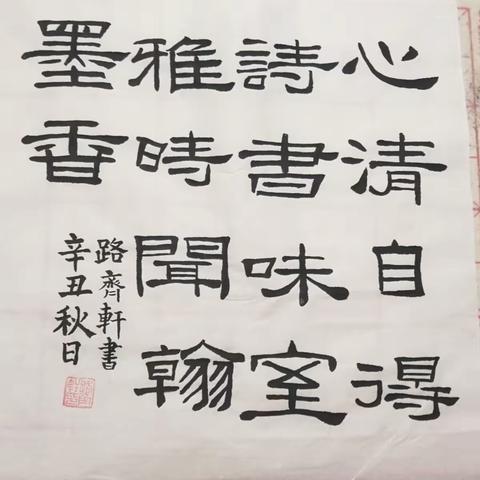 心清自得
詩書味室
雅時聞翰
墨香
辛丑秋日
路齊軒書